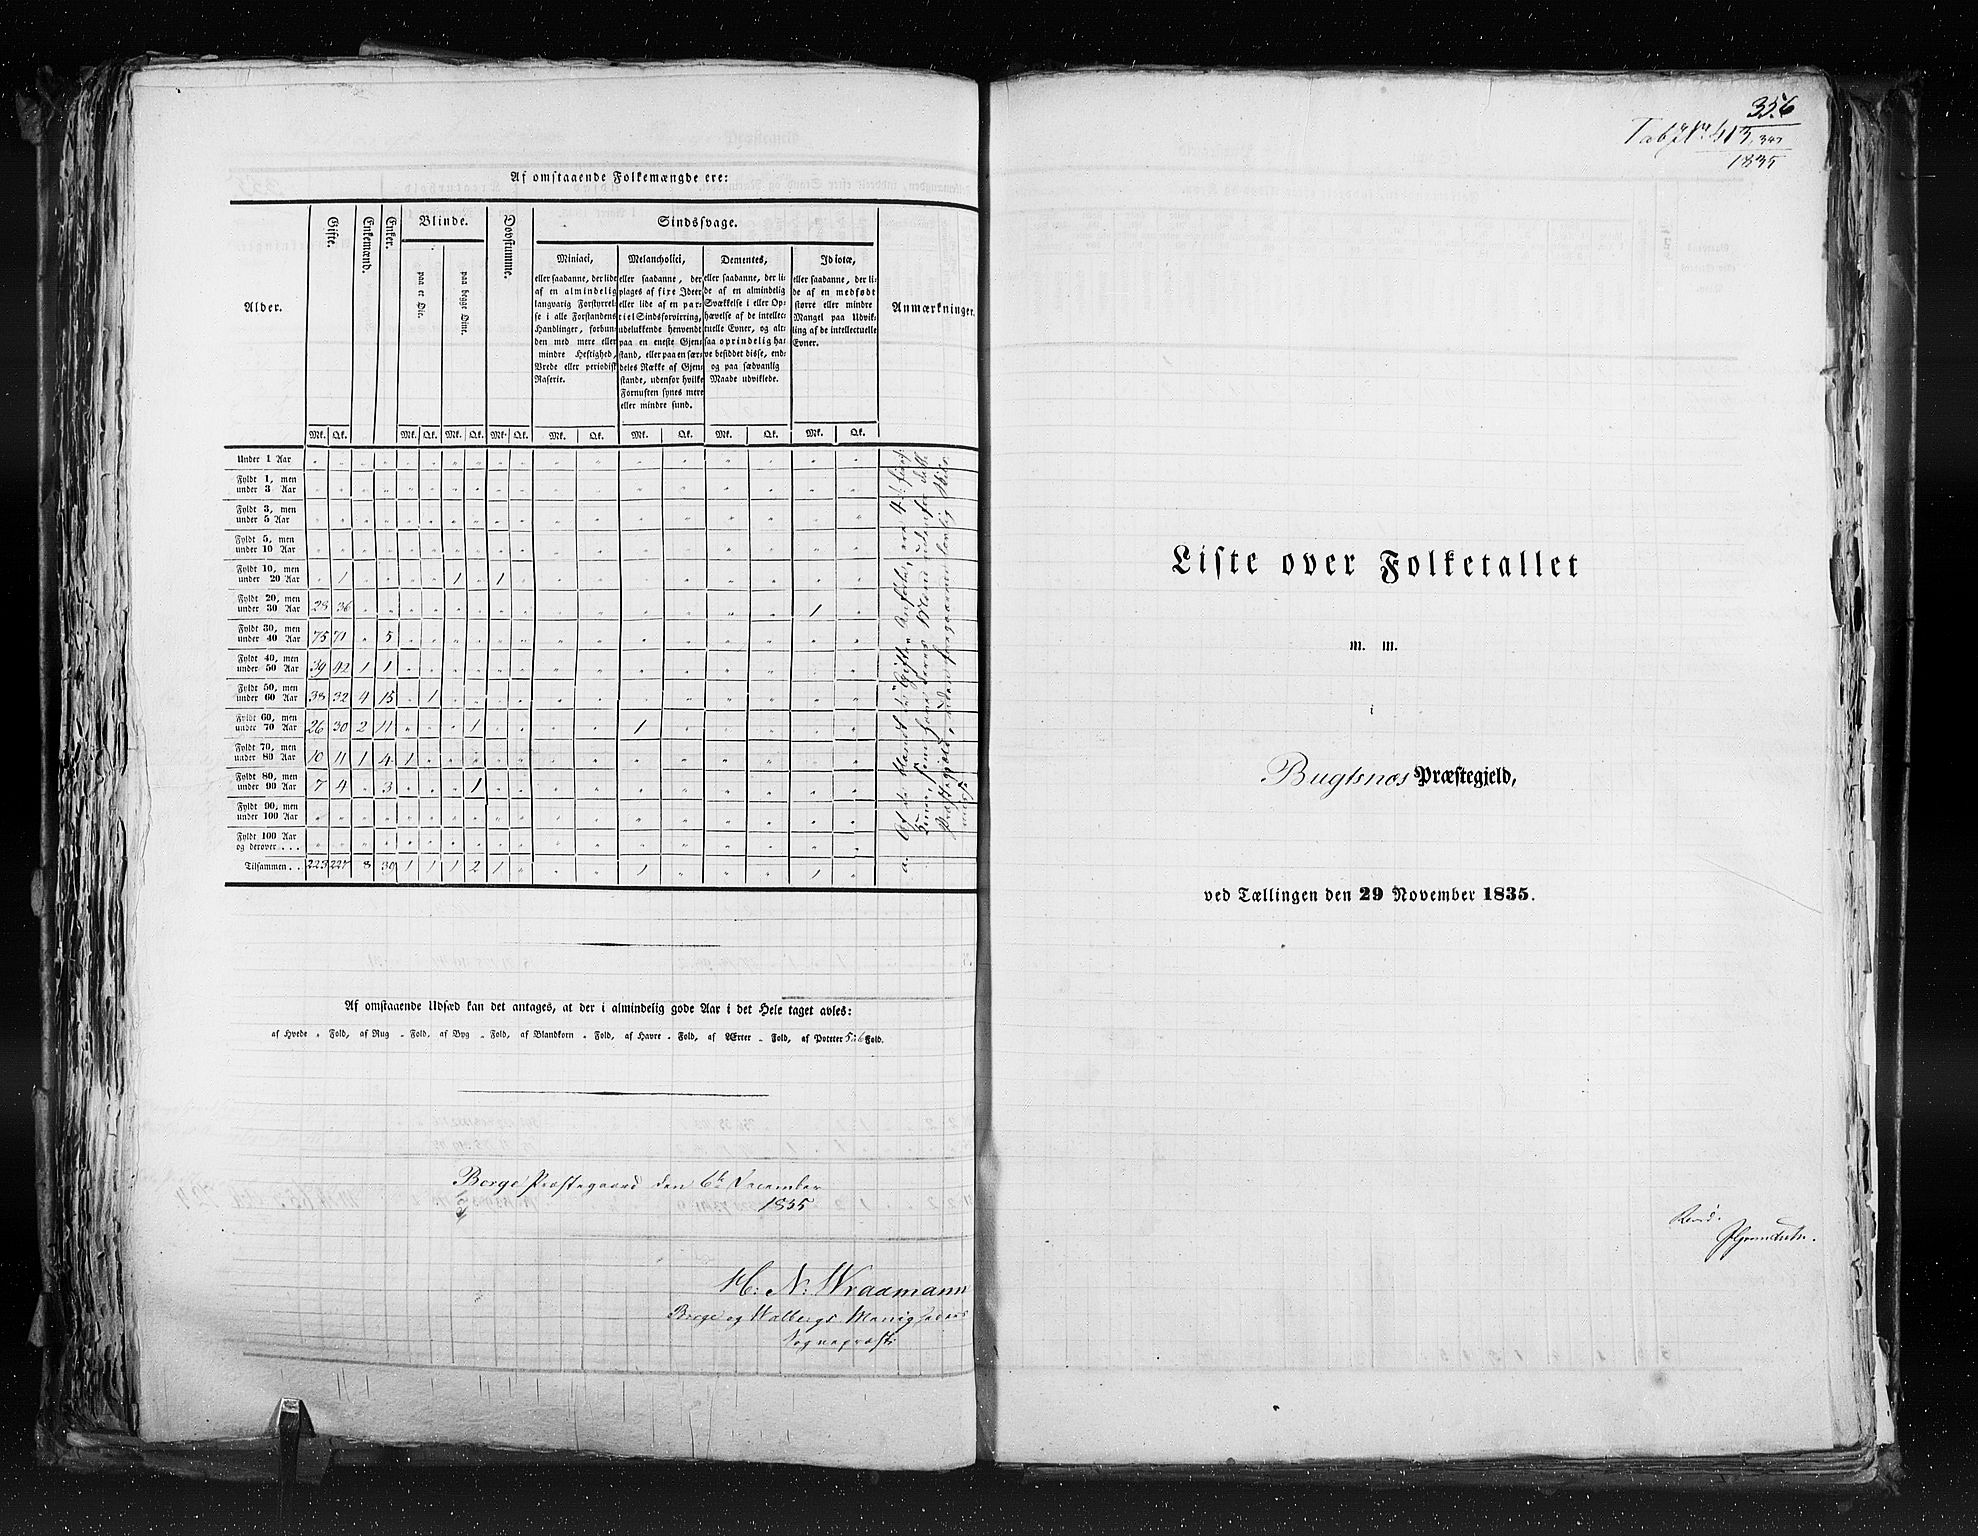 Af omstaaende Folkemængde ere:
Alder. Gifte. Enkemænd. Enker. Blinde. Døvstumme. Sindssvage. Anmærkninger.
paa et Øie. paa begge Øine.
Miniaci,
eller saadanne, der lide
af en almindelig
langvarig Forstyrrel-
se i alle Forstandens
Handlinger, forbun-
den med mere eller
mindre Heftighed,
Vrede eller periodisk
Raserie.
Melancholici,
eller saadanne, der
plages af fixe Ideer
eller lide af en par-
tiel Sindsforvirring,
udelukkende henvendt
paa en eneste Gjen-
stand, eller paa en sær-
deles Række af Gjen-
stande, udenfor hvilke
Fornuften synes mere
eller mindre sund.
Dementes,
eller saadanne, der li-
de af en almindelig
Svækkelse i eller Op-
hævelse af de intellec-
tuelle Evner, og alt-
saa oprindelig ha-
ve besiddet disse, end-
og paa sædvanlig
Maade udviklede.
Idiotæ,
eller saadanne, der li-
de af en medfødt
større eller mindre
Mangel paa Udvik-
ling af de intellectuelle
Evner.
Mk. Qk. Mk. Qk. Mk. Qk. Mk. Qk. Mk. Qk. Mk. Qk. Mk. Qk. Mk. Qk.
Under 1 Aar
Fyldt 1, men
under 3 Aar
Fyldt 3, men
under 5 Aar
Fyldt 5, men
under 10 Aar
Fyldt 10, men
under 20 Aar 1 1 1
Fyldt 20, men
under 30 Aar 28 36 1
Fyldt 30, men
under 40 Aar 75 71 5
Fyldt 40, men
under 50 Aar 39 42 1 1
Fyldt 50, men
under 60 Aar 38 32 4 15 1
Fyldt 60, men
under 70 Aar 26 30 2 11 1 1
Fyldt 70, men
under 80 Aar 10 11 1 4 1
Fyldt 80, men
under 90 Aar 7 4 3 1
Fyldt 90, men
under 100 Aar
Fyldt 100 Aar
og derover . . .
Tilsammen . . 223 227 8 39 1 1 1 2 1 1 1
Af omstaaende Udsæd kan det antages, at der i almindelig gode Aar i det Hele taget avles:
af Hvede " Fold, af Rug " Fold, af Byg " Fold, af Blandkorn " Fold, af Havre " Fold, af Ærter " Fold, af Poteter 5 à 6 Fold.
Borge Præstegaard den 6te December
1835
H: N: Wraamann
Borge og Walbergs Menigheders
Sognepræst
356
1835
Liste over Folketallet
m. m.
i
Bugtsnæs Præstegjeld,
ved Tællingen den 29 November 1835.